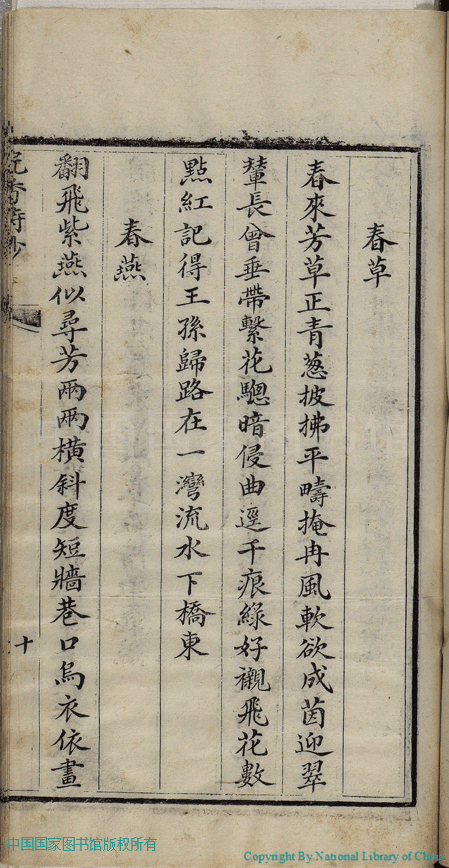 春草
春來芳草正青葱披拂平疇掩冉風軟欲成茵迎翠
輦長曾垂帶繫花驄暗侵曲逕千痕綠好襯飛花數
點紅記得王孫歸路在一灣流水下橋東
春燕
翻飛紫燕似尋芳兩兩橫斜度短牆巷口烏衣依畫
十
中国国家图书馆版权所有
Copyright By National Library of China